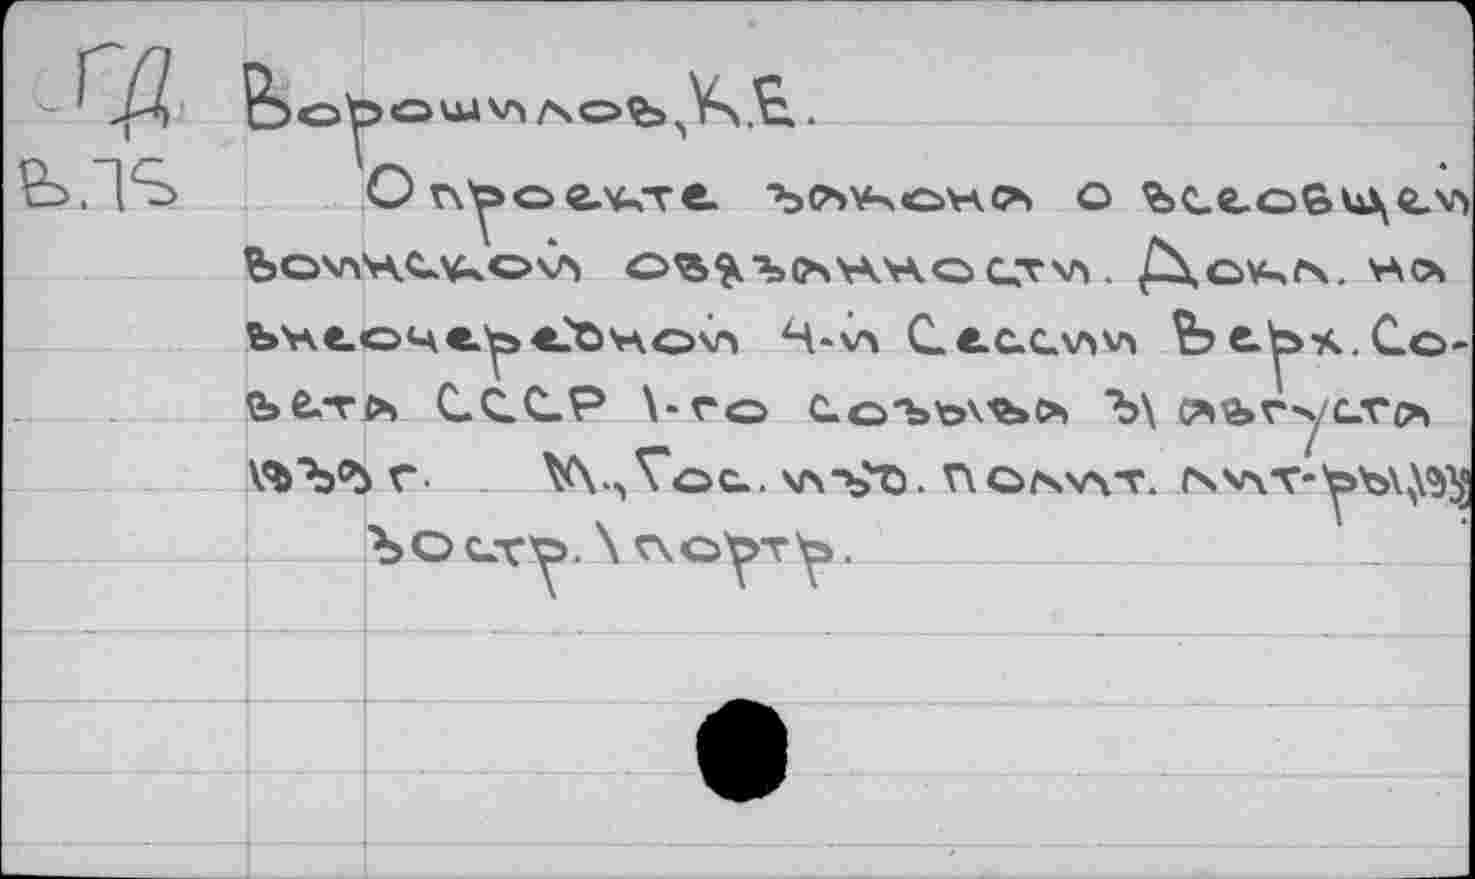 ГД Ворошилов, К.Е.
В.75 О проекте закона о всеобщей
воинской обязанности. Докл. на
внеочередной 4-й Сессии Верх. Со-
вета СССР 1-го созыва 31 августа
1939 г. М., Гос. изд. полит. лит-ры, 1939
30 стр. 1 портр.